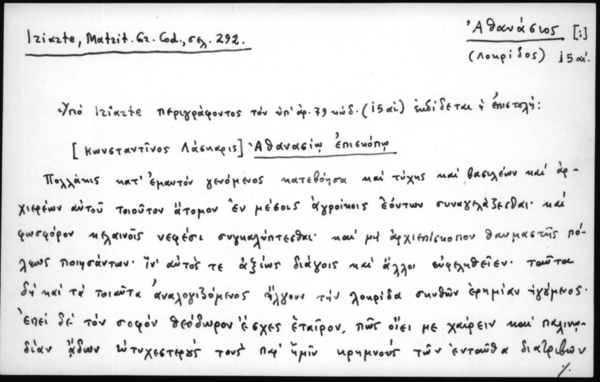 Iriarte, Matrit. Gr. Cod., σελ. 292.
Ἀθανάσιος [i]
(Λοκρίδος) i5 αἰ.
Ὑπὸ Iriarte περιγράφοντος τὸν ὑπ' ἀρ. 79 κώδ. (i5 αἰ) ἐκδίδεται ἡ ἐπιστολή:
[Κωνσταντῖνος Λάσκαρις] Ἀθανασίῳ ἐπισκόπῳ
Πολλάκις κατ' ἐμαυτόν γενόμενος κατεβόησα καὶ τύχης καὶ βασιλέων καὶ ἀρ-
χιερέων αὐτοῦ τοιοῦτον ἄτομον ἐν μέσοις ἀγροίκοις ἐόντων συναγελάζεσθαι· καὶ
φωσφόρον κελαινοῖς νέφεσι συγκαλύπτεσθαι· καὶ μὴ ἀρχιεπίσκοπον θαυμαστῆς πό-
λεως ποιησάντων· ἵν' αὐτός τε ἀξίως διάγοις καὶ ἄλλοι ὠφεληθεῖεν· ταῦτα
δὴ καὶ τὰ τοιαῦτα ἀναλογιζόμενος ἤλγουν τὴν Λοκρίδα σκυθῶν ἐρημίαν ἡγούμενος·
ἐπεὶ δὲ τὸν σοφὸν Θεόδωρον ἔσχες ἑταῖρον, πῶς οἴει με χαίρειν καὶ παλινῳ-
δίαν ᾄδων εὐτυχεστέρους τοὺς παρ' ἡμῖν κρημνοὺς τῶν ἐνταῦθα διατριβῶν